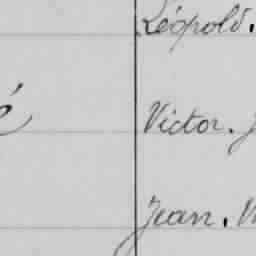 Léopold.
é
Victor. J
Jean. V